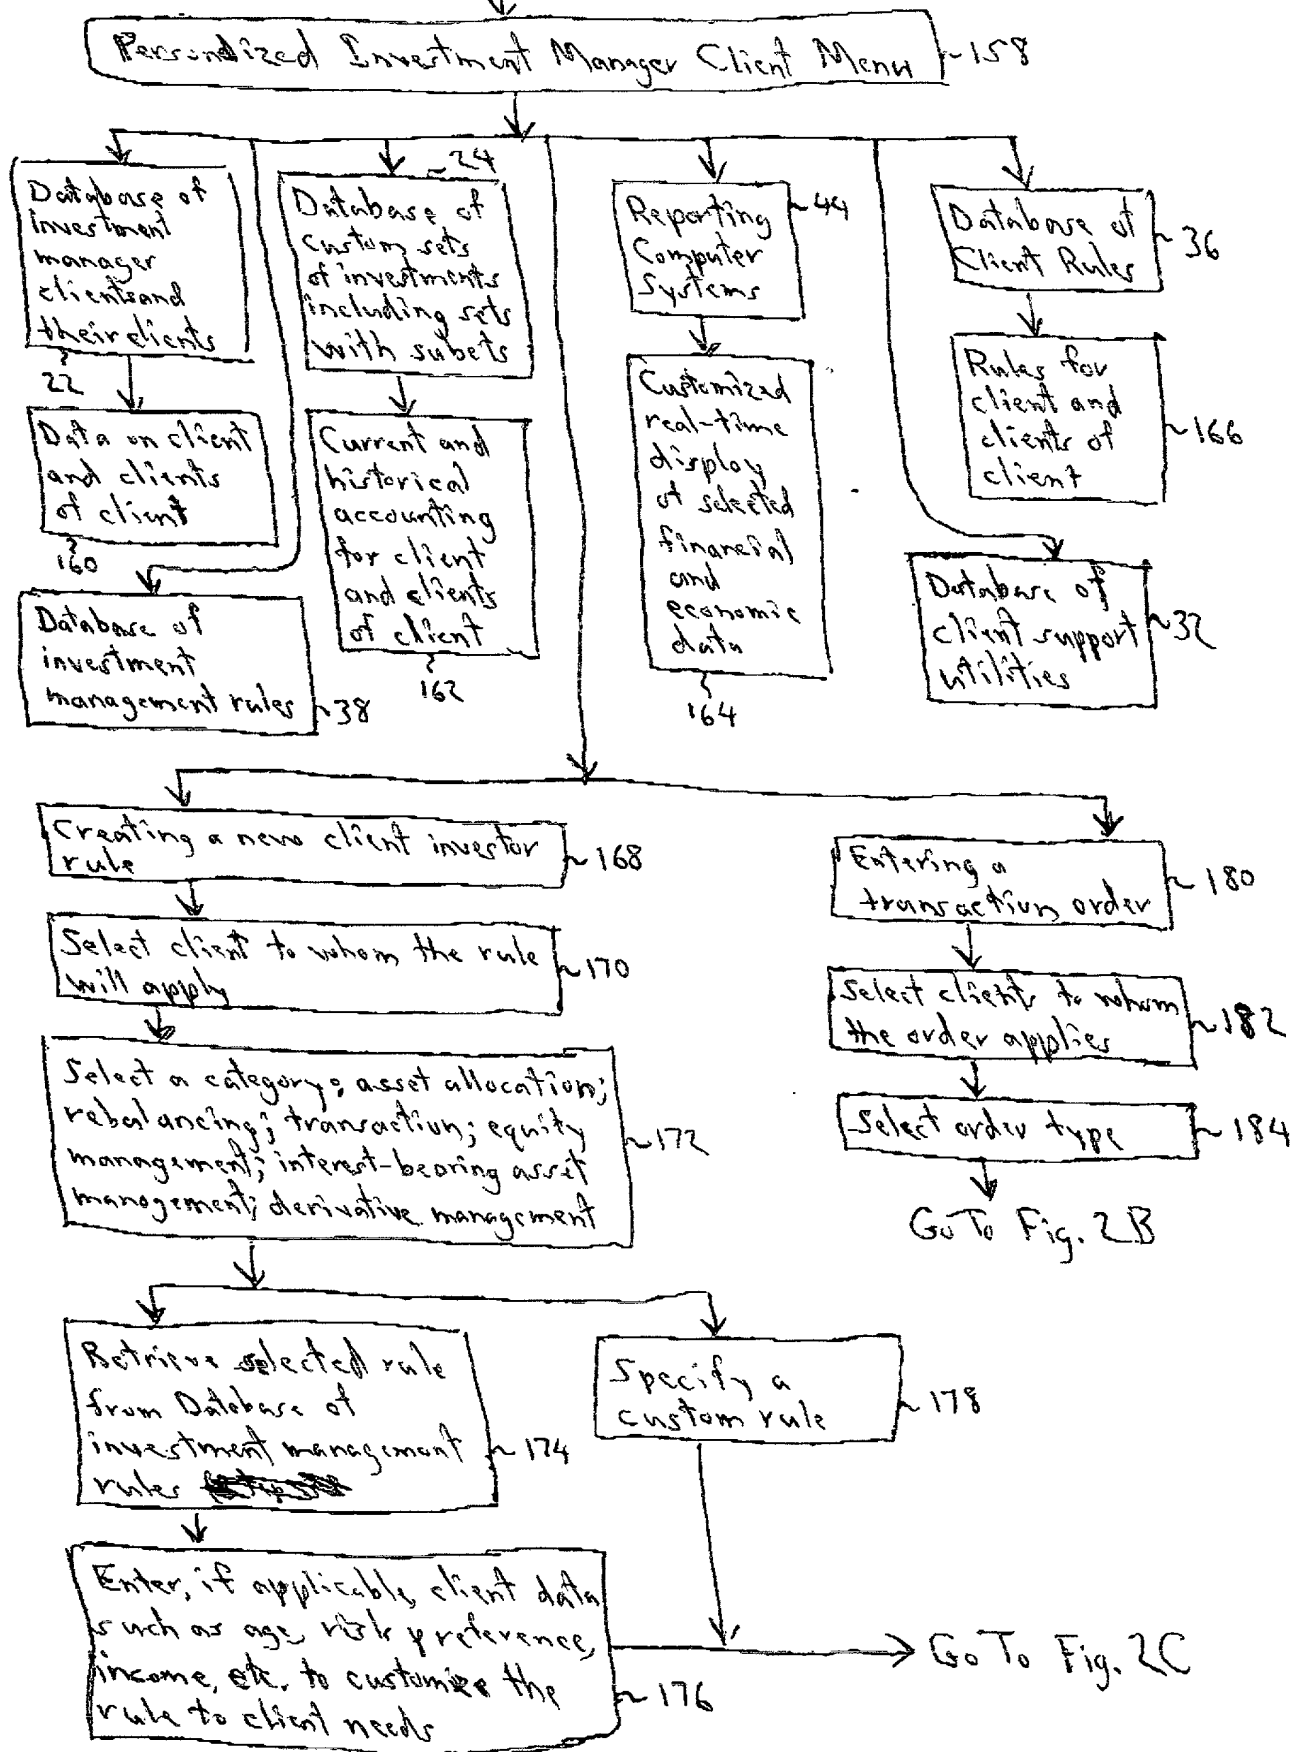 Personalized Investment Manager Client Menu
158
Database of
investment
manager
clients and
their clients
22
Data on client
and clients
of client
160
Database of
investment
management rules
38
24
Database of
custom sets
of investments
including sets
with subets
Current and
historical
accounting
for client
and clients
of client
162
Reporting
Computer
Systems
44
Customized
real-time
display
of selected
financial
and
economic
data
164
Database of
Client Rules
36
Rules for
client and
clients of
client
166
Database of
client support
utilities
32
Creating a new client investor
rule
168
Select client to whom the rule
will apply
170
Select a category: asset allocation;
rebalancing; transaction; equity
management; interest-bearing asset
management; derivative management
172
Retrieve selected rule
from Database of
investment management
rules
174
Enter, if applicable, client data
such as age, risk preference,
income, etc. to customize the
rule to client needs
176
Specify a
custom rule
178
Go To Fig. 2C
Entering a
transaction order
180
Select clients to whom
the order applies
182
Select order type
184
Go To Fig. 2B